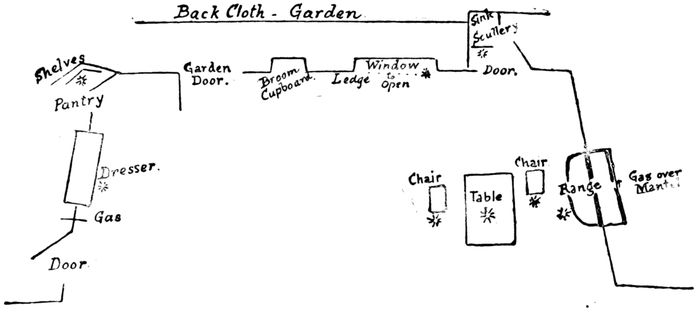 Back Cloth - Garden.
Sink
Scullery
Shelves
Pantry
Garden
Door.
Broom
Cupboard.
Ledge
Window
to
Open
Door.
Dresser.
Chair
Chair
Table
Range
Gas over
Mantel
Gas
Door.